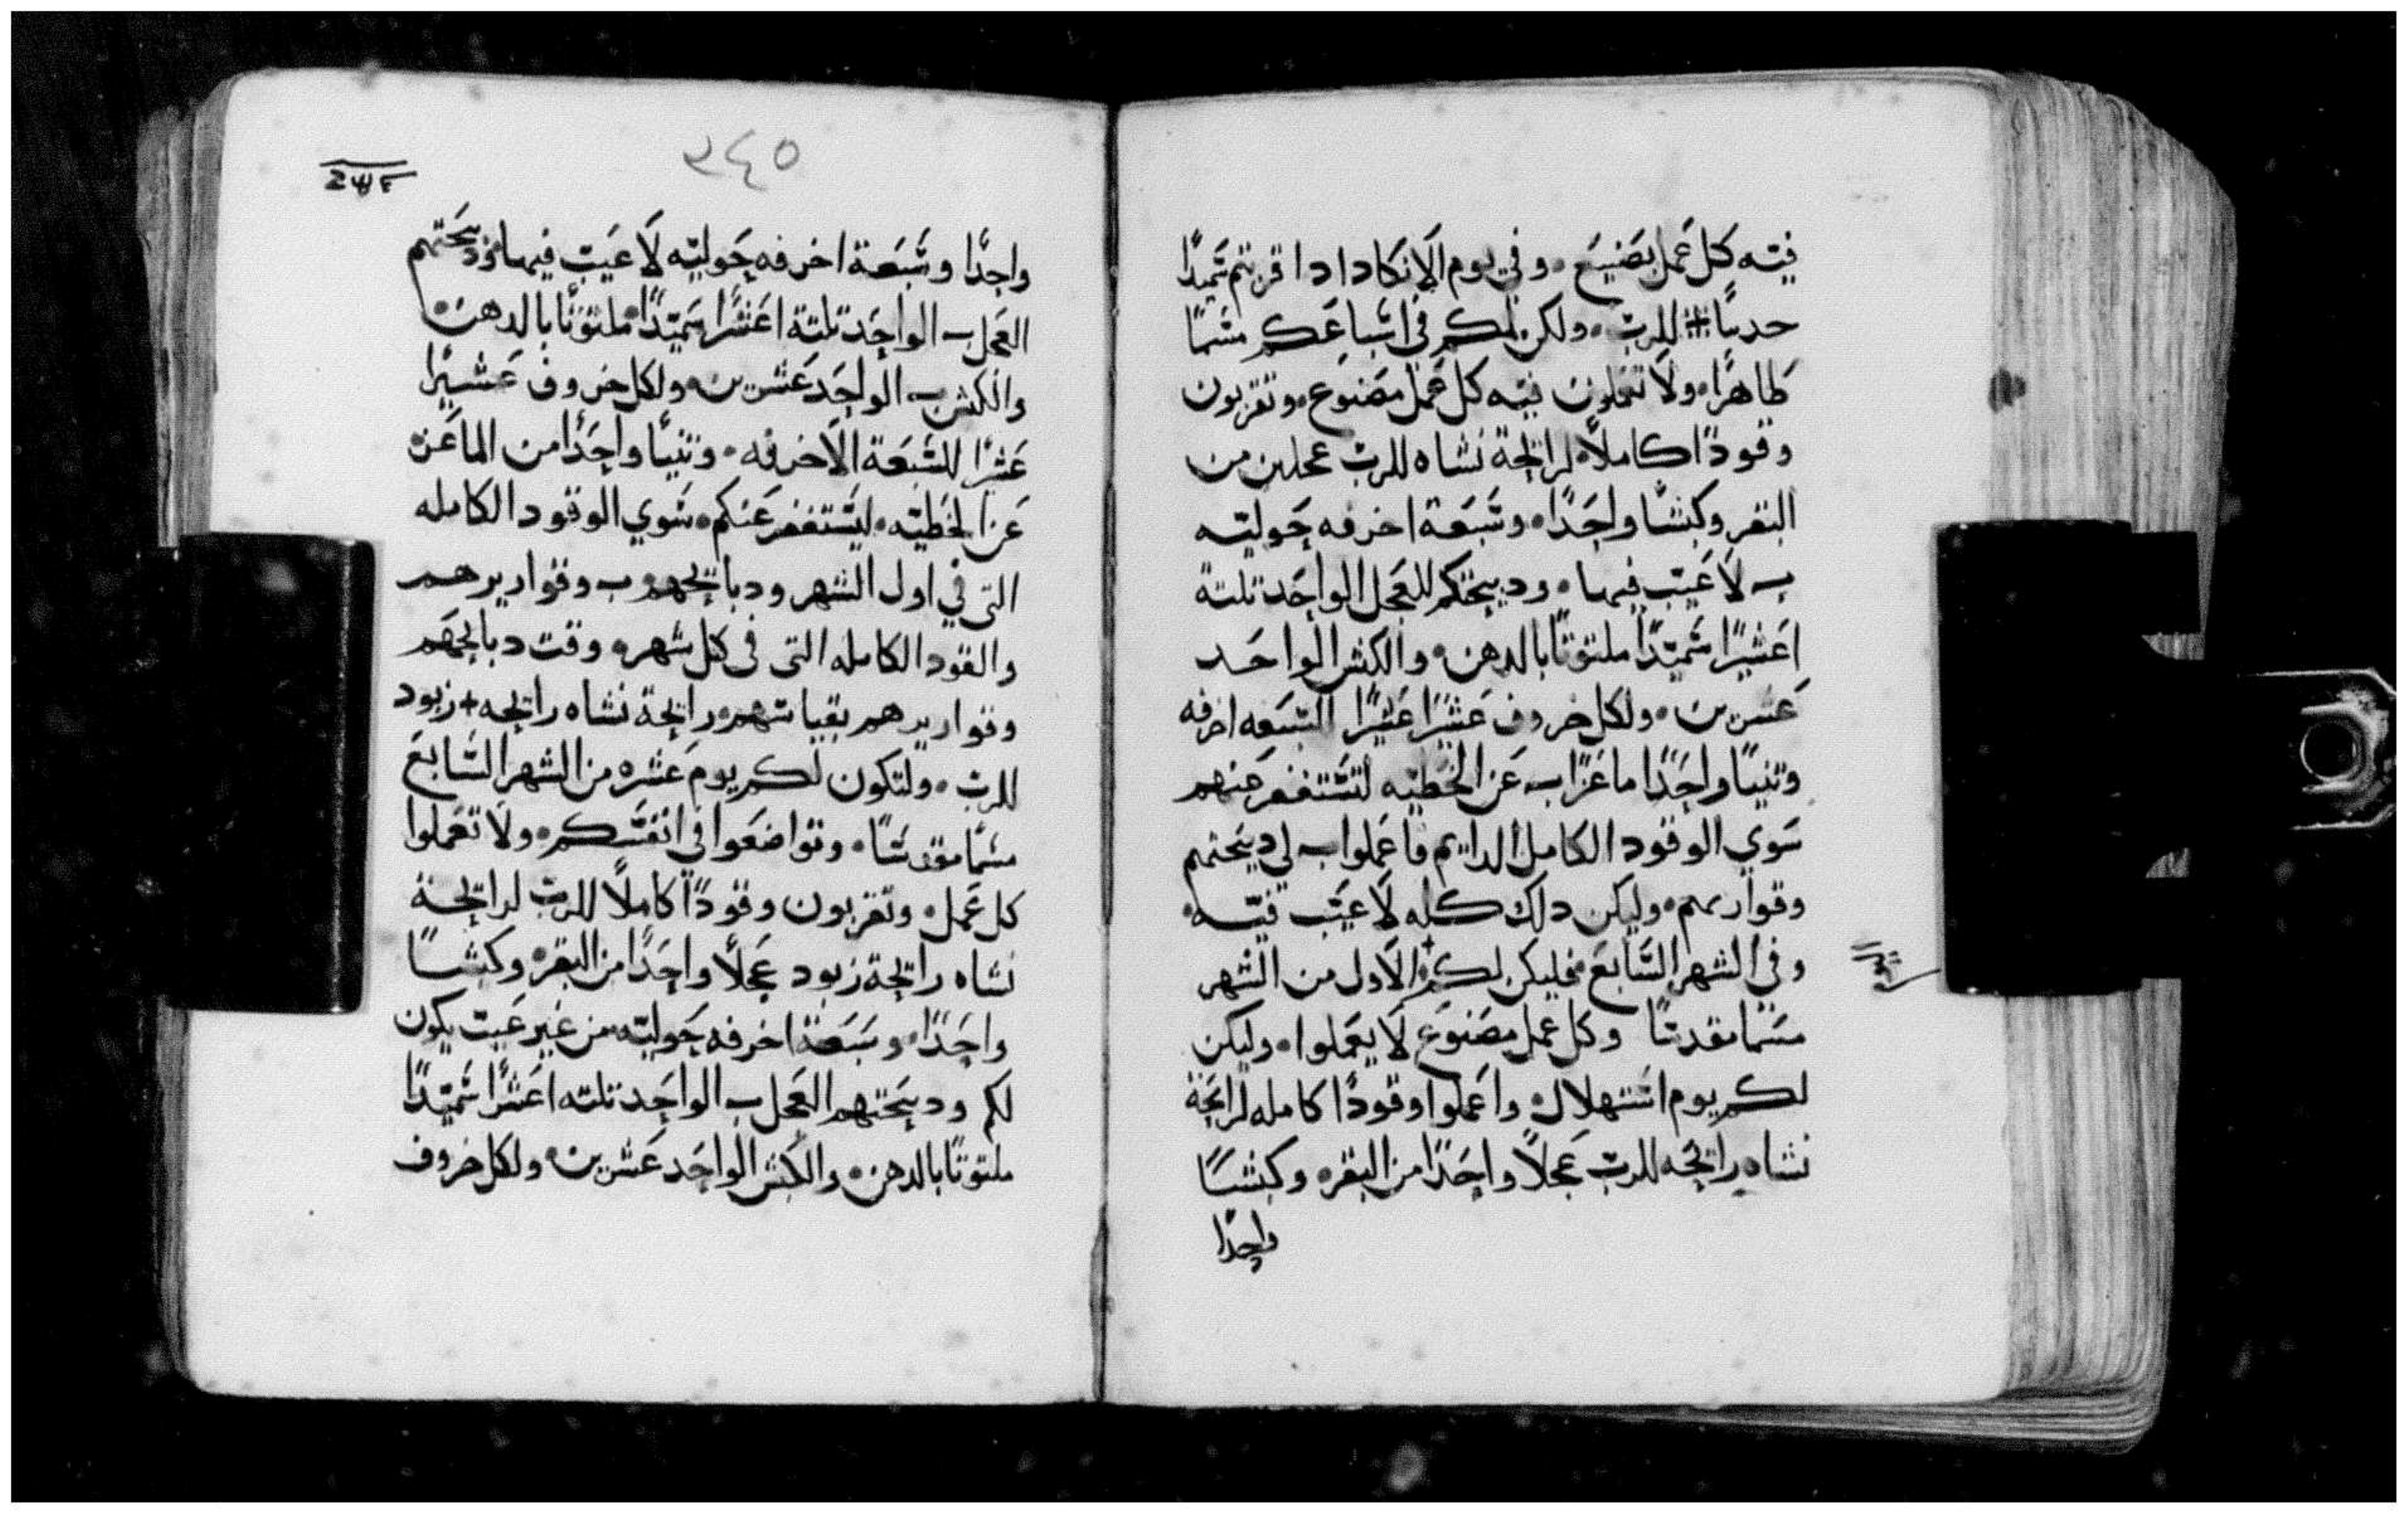 فيه كل عمل يصنع ۰ وفي يوم الانكادا دا قربتم سميدًا
حديثًا ⁜ للرب ۰ ولكن لكم في اسباعكم مسمًا
طاهرًا ۰ ولا تعملون فيه كل عمل مصنوع ۰ وتقربون
وقودًا كاملاً ۰ لرايحة نشاه للرب عجلين من
البقر وكبشًا واحدًا ۰ وسبعة اخرفه حوليه
ب لا عيب فيها ۰ ودبيحتكم للعجل الواحد تلتة
اعشيرًا سميدًا ملتوتًا بالدهن ۰ والكبش الواحد
عشرين ۰ ولكل خروف عشرًا عشرًا للسبعه اخرفه
وتنيًا واحدًا ماعزًا ب عن الخطيه لتستغفر عنهم
سوي الوقود الكامل الدايم فاعملوا ب لي دبيحتهم
وقواريرهم ۰ وليكن دلك كله لا عيب فيه ۰
وفي الشهر السابع فليكن لكم ۰ الاول من الشهر
مسمًا مقدسًا وكل عمل مصنوع لا يعملوا ۰ وليكن
لكم يوم استهلال ۰ واعملوا وقودًا كامله لرايحة
نشاه رايحه للرب عجلاً واحدًا من البقر ۰ وكبشًا
واحدًا
٣٤٥
واحدًا وسبعة اخرفه حوليه لا عيب فيها ۰ ودبيحتهم
العجل ب الواحد تلتة اعشرًا سميدًا ۰ ملتوتًا بالدهن ۰
والكبش ب الواحد عشرين ۰ ولكل خروف عشيرًا
عشرًا للسبعة الاخرفه ۰ وتنيًا واحدًا من الماعز ۰
عن الخطيه ۰ ليستغفر عنكم ۰ سوي الوقود الكامله
التي في اول الشهر ودبايحهم ب وقواريرهم
والقود الكامله التي في كل شهر ۰ وقت دبايحهم
وقواريرهم بقياسهم ۰ رايحة نشاه رايحه + زبود
للرب ۰ ولتكون لكم يوم عشره من الشهر السابع
مسمًا مقدسًا ۰ وتواضعوا في انفسكم ۰ ولا تعملوا
كل عمل ۰ وتقربون وقودًا كاملاً للرب لرايحة
نشاه رايحة زبود عجلاً واحدًا من البقر ۰ وكبشًا
واحدًا ۰ وسبعة اخرفه حوليه ۰ من غير عيب يكون
لكم ودبيحتهم العجل ب الواحد تلته اعشرًا سميدًا
ملتوتًا بالدهن ۰ والكبش الواحد عشرين ۰ ولكل خروف